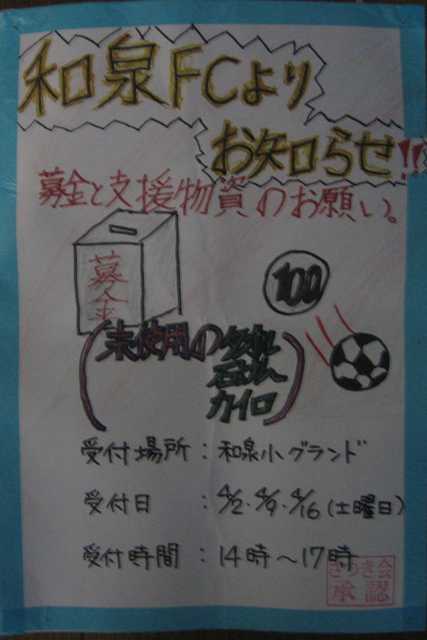 和泉FCより
お知らせ!!
募金と支援物資のお願い。
募金
100
(未使用の
石けん
カイロ)
受付場所：和泉小グランド
受付日：4/2・4/9・4/16(土曜日)
受付時間：14時～17時
さつき会
承認